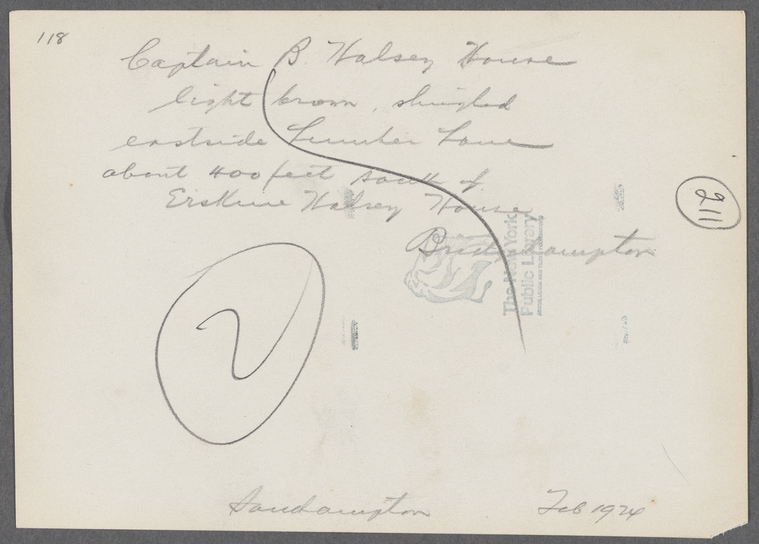 118
Captain B. Halsey House
light brown, shingled
eastside Lumber Lane
about 400 feet south of
Erskine Halsey House
Bridgehampton
211
The New York
Public Library
2
Southampton Feb 1924